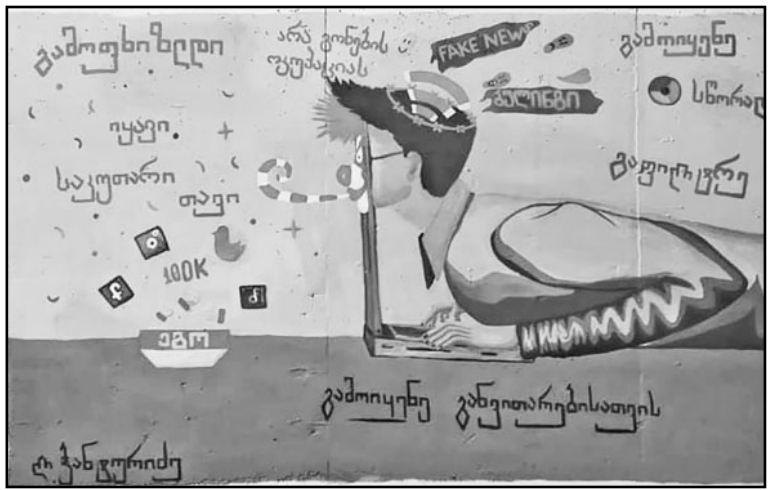 გამოფხიზლდი
იყავი
საკუთარი
თავი
100K
ეგო
არა გონების
ოკუპაციას
FAKE NEWS
ბულინგი
გამოიყენე
სწორად
გაფილტრე
გამოიყენე განვითარებისათვის